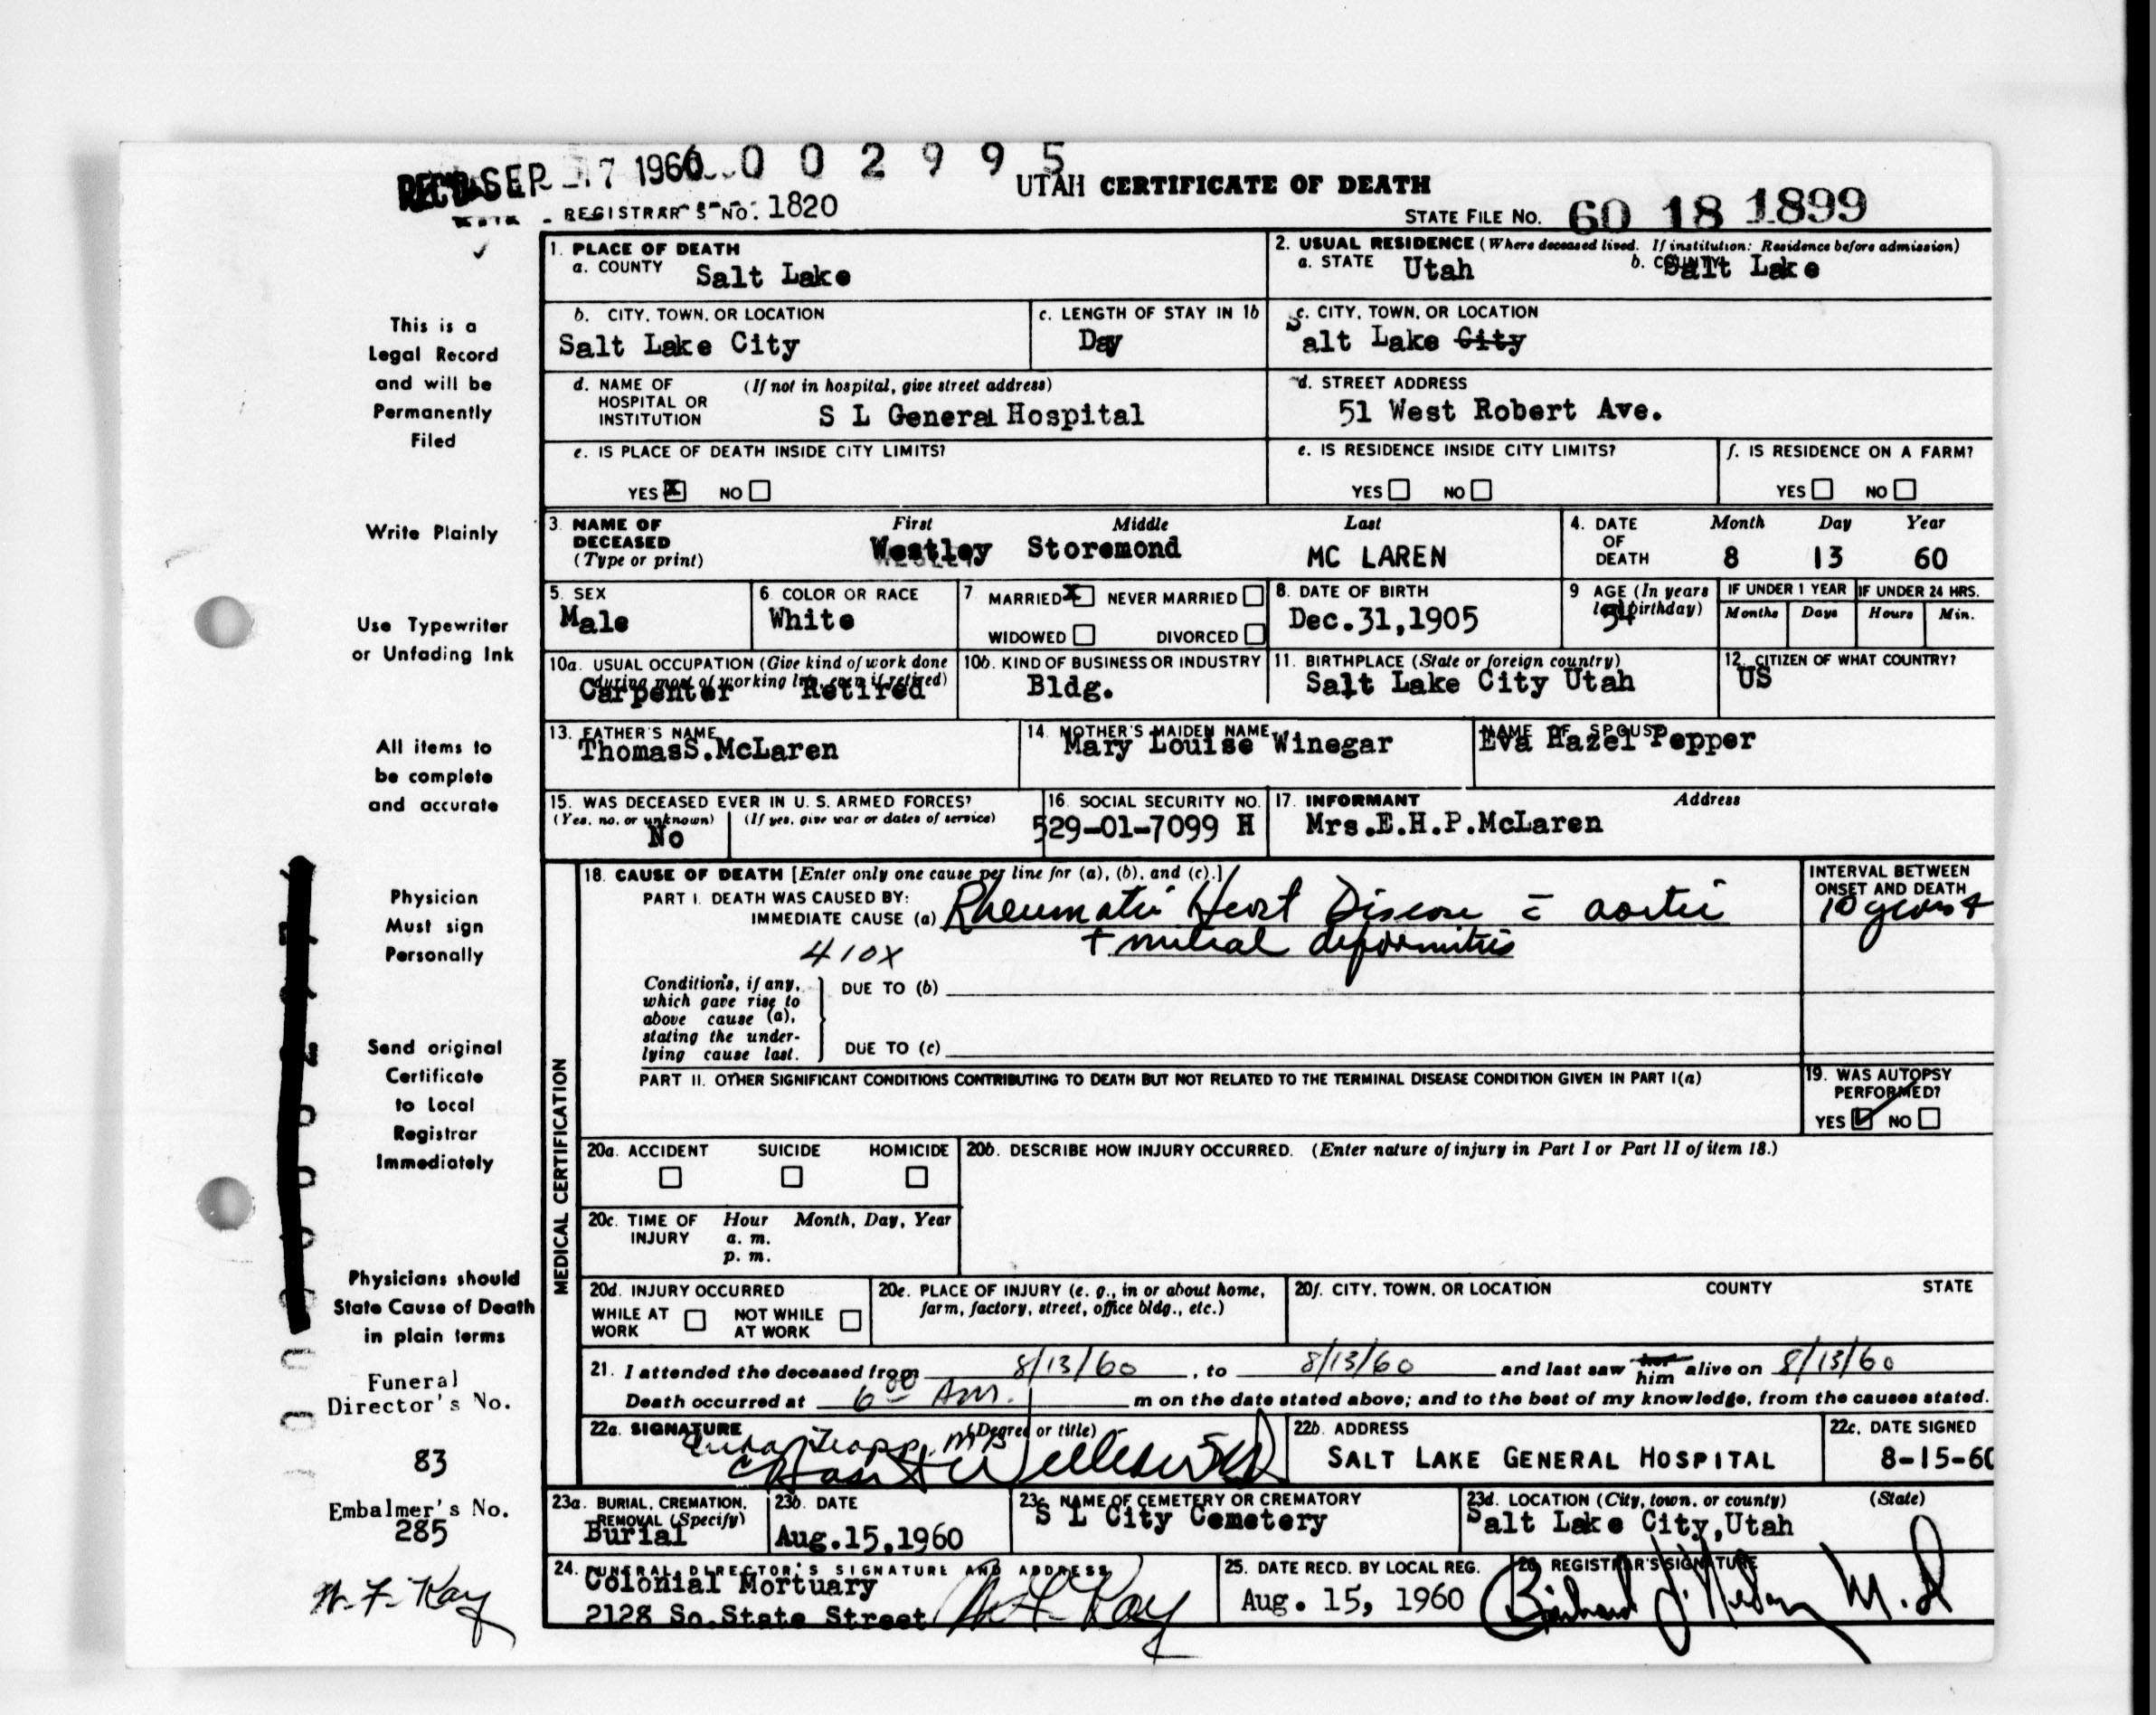 REC'D SEP 17 1960 002995
UTAH CERTIFICATE OF DEATH
REGISTRAR'S NO. 1820
STATE FILE NO. 60 18 1899
This is a
Legal Record
and will be
Permanently
Filed
Write Plainly
Use Typewriter
or Unfading Ink
All items to
be complete
and accurate
Physician
Must sign
Personally
Send original
Certificate
to Local
Registrar
Immediately
Physicians should
State Cause of Death
in plain terms
Funeral
Director's No.
83
Embalmer's No.
285
W. F. Kay
1. PLACE OF DEATH
a. COUNTY Salt Lake
2. USUAL RESIDENCE (Where deceased lived. If institution: Residence before admission)
a. STATE Utah b. COUNTY Salt Lake
b. CITY, TOWN, OR LOCATION
Salt Lake City
c. LENGTH OF STAY IN 1b
Day
c. CITY, TOWN, OR LOCATION
Salt Lake City
d. NAME OF (If not in hospital, give street address)
HOSPITAL OR
INSTITUTION S L General Hospital
d. STREET ADDRESS
51 West Robert Ave.
e. IS PLACE OF DEATH INSIDE CITY LIMITS?
YES X NO
e. IS RESIDENCE INSIDE CITY LIMITS?
YES NO
f. IS RESIDENCE ON A FARM?
YES NO
3. NAME OF DECEASED (Type or print)
First Middle Last
Westley Storemond MC LAREN
4. DATE OF DEATH
Month Day Year
8 13 60
5. SEX
Male
6. COLOR OR RACE
White
7. MARRIED X NEVER MARRIED
WIDOWED DIVORCED
8. DATE OF BIRTH
Dec.31,1905
9 AGE (In years last birthday)
54
IF UNDER 1 YEAR IF UNDER 24 HRS.
Months Days Hours Min.
10a. USUAL OCCUPATION (Give kind of work done during most of working life, even if retired)
Carpenter Retired
10b. KIND OF BUSINESS OR INDUSTRY
Bldg.
11. BIRTHPLACE (State or foreign country)
Salt Lake City Utah
12. CITIZEN OF WHAT COUNTRY?
US
13. FATHER'S NAME
ThomasS.McLaren
14. MOTHER'S MAIDEN NAME
Mary Louise Winegar
NAME OF SPOUSE
Eva Hazel Pepper
15. WAS DECEASED EVER IN U. S. ARMED FORCES?
(Yes, no, or unknown) (If yes, give war or dates of service)
No
16. SOCIAL SECURITY NO.
529-01-7099 H
17. INFORMANT Address
Mrs.E.H.P.McLaren
MEDICAL CERTIFICATION
18. CAUSE OF DEATH [Enter only one cause per line for (a), (b), and (c).]
PART I. DEATH WAS CAUSED BY:
IMMEDIATE CAUSE (a) Rheumatic Heart Disease c̄ aortic
+ mitral deformities
410X
INTERVAL BETWEEN
ONSET AND DEATH
10 years +
Conditions, if any,
which gave rise to
above cause (a),
stating the under-
lying cause last.
DUE TO (b)
DUE TO (c)
PART II. OTHER SIGNIFICANT CONDITIONS CONTRIBUTING TO DEATH BUT NOT RELATED TO THE TERMINAL DISEASE CONDITION GIVEN IN PART I(a)
19. WAS AUTOPSY
PERFORMED?
YES ✓ NO
20a. ACCIDENT SUICIDE HOMICIDE
20b. DESCRIBE HOW INJURY OCCURRED. (Enter nature of injury in Part I or Part II of item 18.)
20c. TIME OF INJURY Hour Month, Day, Year
a. m.
p. m.
20d. INJURY OCCURRED
WHILE AT WORK NOT WHILE AT WORK
20e. PLACE OF INJURY (e. g., in or about home,
farm, factory, street, office bldg., etc.)
20f. CITY, TOWN, OR LOCATION COUNTY STATE
21. I attended the deceased from 8/13/60, to 8/13/60 and last saw her him alive on 8/13/60
Death occurred at 6 00 Am. m on the date stated above; and to the best of my knowledge, from the causes stated.
22a. SIGNATURE (Degree or title)
22b. ADDRESS
SALT LAKE GENERAL HOSPITAL
22c. DATE SIGNED
8-15-60
23a. BURIAL, CREMATION,
REMOVAL (Specify)
Burial
23b. DATE
Aug.15,1960
23c. NAME OF CEMETERY OR CREMATORY
S L City Cemetery
23d. LOCATION (City, town, or county) (State)
Salt Lake City,Utah
24. FUNERAL DIRECTOR'S SIGNATURE AND ADDRESS
Colonial Mortuary
2128 So.State Street W. F. Kay
25. DATE RECD. BY LOCAL REG.
Aug. 15, 1960
26. REGISTRAR'S SIGNATURE
M.D